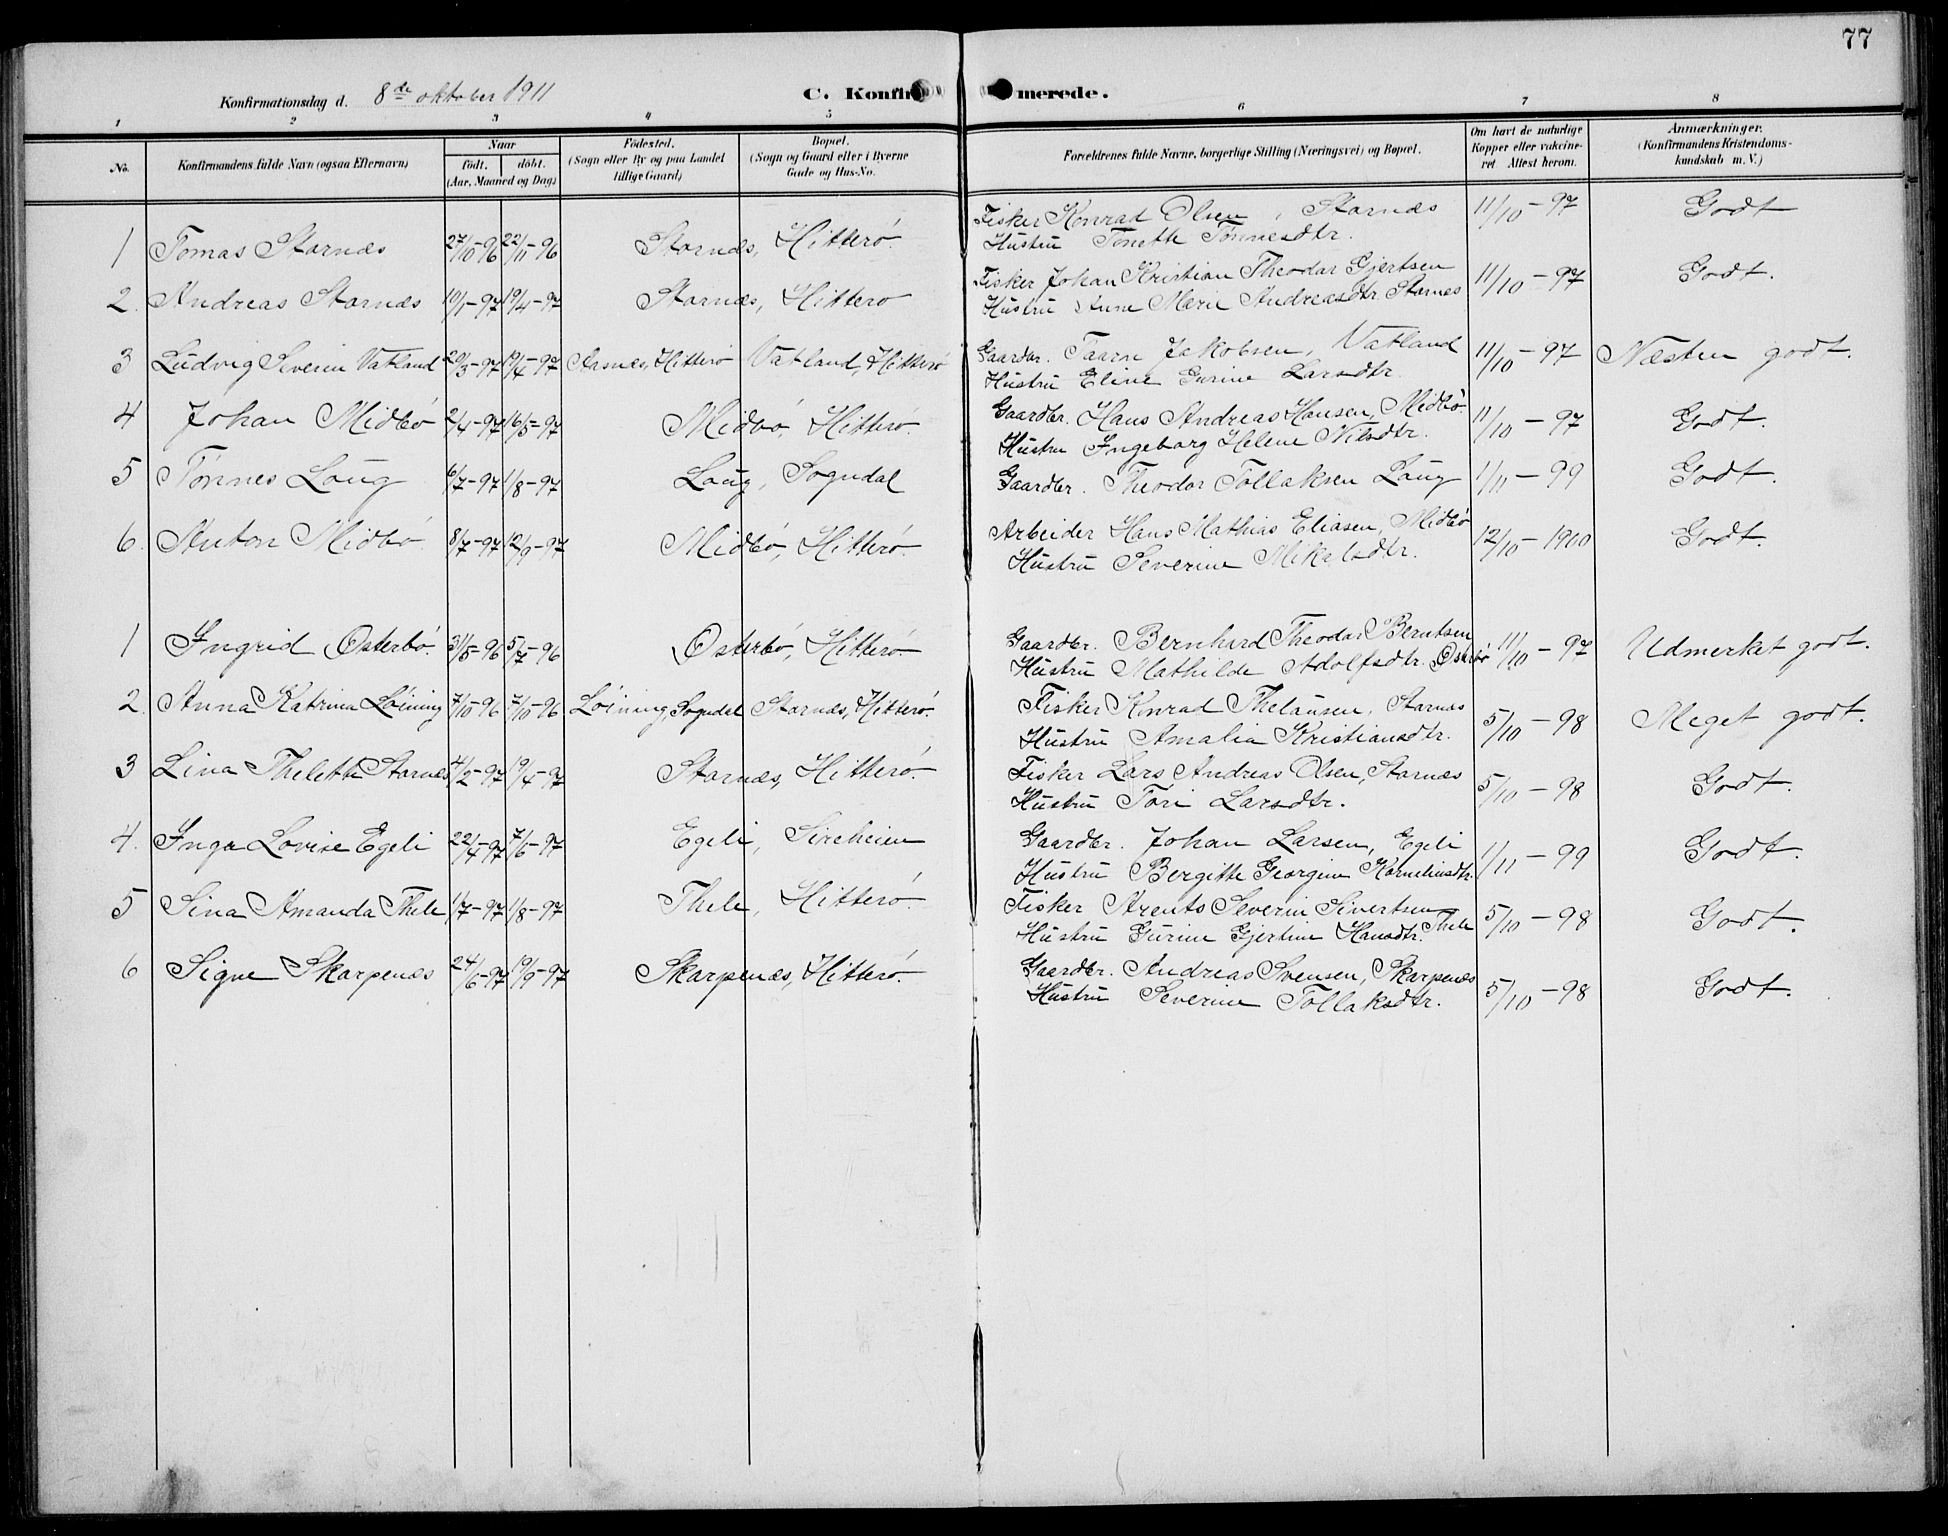 77
Konfirmationsdag d. 8de oktober 1911 C. Konfirmerede.
1 2 3 4 5 6 7 8
No. Konfirmandens fulde Navn (ogsaa Efternavn) Naar født. døbt. (Aar, Maaned og Dag) Fødested. (Sogn eller By og paa Landet tillige Gaard) Bopæl. (Sogn og Gaard eller i Byerne Gade og Hus-No. Forældrenes fulde Navne, borgerlige Stilling (Næringsvei) og Bopæl. Om havt de naturlige Kopper eller vakcineret Attest herom. Anmærkninger. (Konfirmandens Kristendomskundskab m. V.)
1 Tomas Starnæs 27/10-96 22/11-96 Starnæs, Hitterø Fisker Konrad Olsen, Starnæs 11/10-97 Godt
Hustru Tonette Tønnesdtr.
2. Andreas Starnæs 10/1-97 19/4-97 Starnæs, Hitterø Fisker Johan Kristian Theodor Gjertsen 11/10-97 Godt.
Hustru Anne Marie Andreasdtr. Starnes
3 Ludvig Severin Vatland 20/3-97 19/4-97 Aasnes, Hitterø Vatland, Hitterø Gaardbr. Taarn Jakobsen, Vatland 11/10-97 Næsten godt.
Hustru Eline Gurine Larsdtr.
4 Johan Midbø 2/4-97 16/5-97 Midbø, Hitterø. Gaardbr. Hans Andreas Hansen, Midbø. 11/10-97 Godt.
Hustru Ingeborg Helene Nilsdtr.
5 Tønnes Loug 6/7-97 1/8-97 Loug, Sogndal Gaardbr. Theodor Tollaksen Loug 1/11-99 Godt.
6. Anton Midbø 8/7-97 12/9-97 Midbø, Hitterø Arbeider Hans Mathias Eliasen, Midbø 12/10-1900 Godt.
Hustru Severine Mikalsdtr.
1 Ingrid Østerbø. 31/5-96 5/7-96 Østerbø, Hitterø. Gaardbr. Bernhard Theodor Berntsen 11/10-97 Udmerket godt.
Hustru Mathilde Adolfsdtr. Østerbø
2. Anna Katrina Løining 7/10-96 7/10-96 Løining, Sogndal Starnæs, Hitterø. Fisker Konrad Thelausen, Starnæs 5/10-98 Meget godt.
Hustru Amalia Kristiansdtr.
3 Lina Thelette Starnes 4/2-97 19/4-97 Starnæs, Hitterø. Fisker Lars Andreas Olsen, Starnæs 5/10-98 Godt.
Hustru Tøri Larsdtr.
4. Inga Lovise Egeli 22/4-97 7/6-97 Egeli, Sireheien Gaardbr. Johan Larsen, Egeli 1/11-99 Godt.
Hustru Bergitte Georgine Korneliusdtr.
5 Sina Amanda Thele 1/7-97 1/8-97 Thele, Hitterø. Fisker Arents Severin Sivertsen 5/10-98 Godt.
Hustru Gurine Gjertine Hansdtr. Thele
6 Signe Skarpenæs 24/6-97 19/9-97 Skarpenæs, Hitterø. Gaardbr. Andreas Svensen, Skarpenæs 5/10-98 Godt.
Hustru Severine Tollaksdtr.